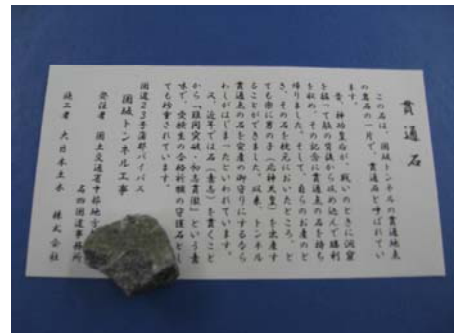 貫通石
この石は、国坂トンネルの貫通地点
の岩石の一片で、貫通石と呼ばれてい
ます。
昔、神功皇后が、戦いのときに洞窟
を掘って敵の背後から攻め込んで勝利
を収め、その記念に貫通点の石を持ち
帰りました。そして、自らのお産のと
き、その石を枕元においたところ、と
ても楽に男の子(応神天皇)を出産す
ることができました。以来、トンネル
貫通点の石を安産の御守りにするなら
わしがはじまったといわれています。
又、近年では石(意志)を貫くこと
から「難関突破・初志貫徹」という意
味で、受験生の合格祈願の守護石とし
ても珍重されています。
国道23号蒲郡バイパス
国坂トンネル工事
発注者 国土交通省中部地方
名四国道事務所
施工者 大日本土木 株式会社